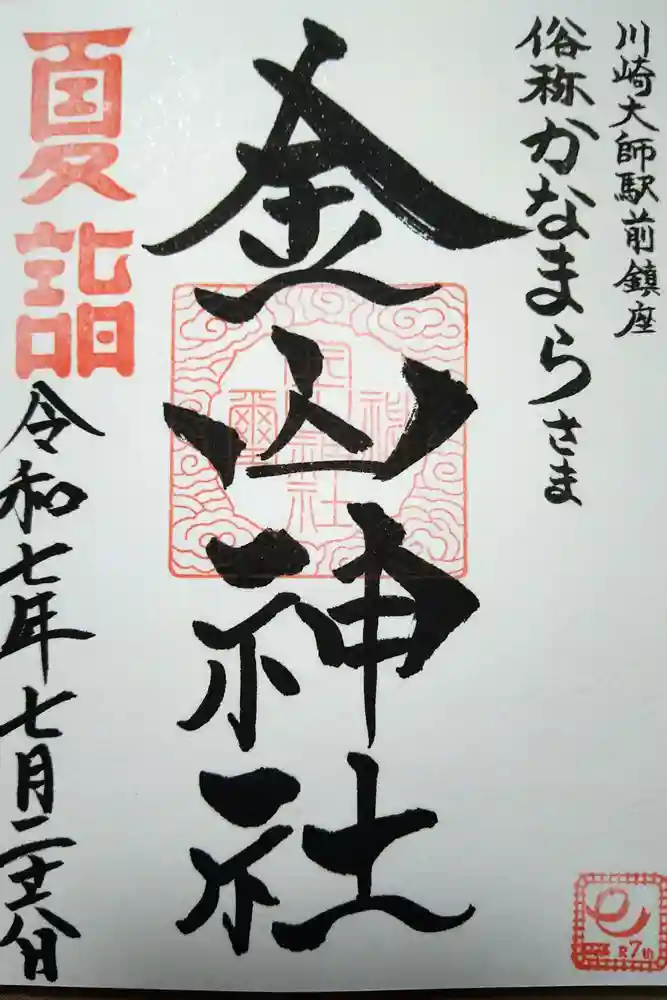 川崎大師駅前鎮座
俗称かなまらさま
金山神社
夏詣
令和七年七月二十六日
R7th